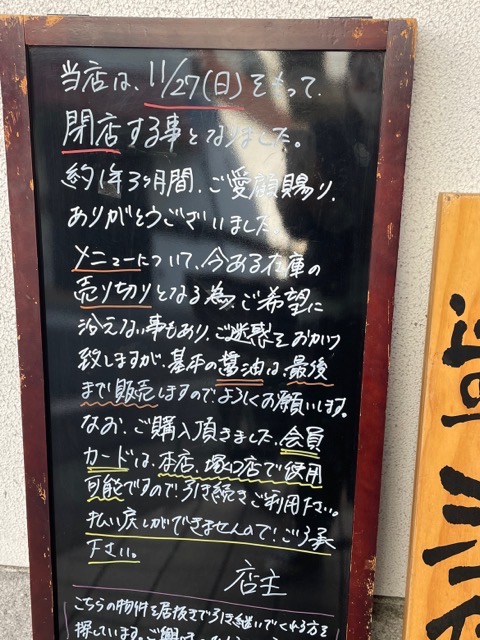 当店は、11/27(日)をもって、
閉店する事となりました。
約1年3ヶ月間、ご愛顧賜り、
ありがとうございました。
メニューについて、今ある在庫の
売り切りとなる為、ご希望に
沿えない事もあり、ご迷惑をおかけ
致しますが、基本の醤油は、最後
まで販売しますのでよろしくお願いします。
なお、ご購入頂きました、会員
カードは、本店、塚口店で使用
可能ですので、引き続きご利用下さい。
払い戻しができませんので!ご了承
下さい。
店主
こちらの物件を居抜きで引き継いでくれる方を
探しています。ご興味